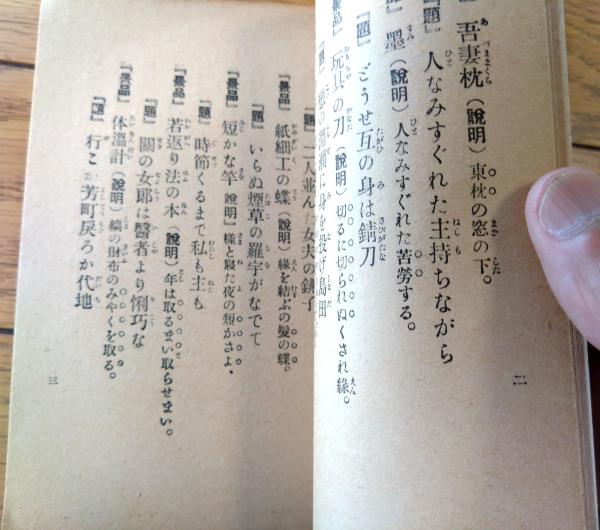 吾妻枕（說明）東枕の窓の下。
『題』人なみすぐれた主持ちながら
墨（說明）人なみすぐれた苦勞する。
『題』どうせ互の身は錆刀
玩具の刀（說明）切るに切られぬくされ緣。
に身を投げ島田
二
『題』二人並んだ女夫の銚子
『景品』紙細工の蝶（說明）緣を結ぶの髮の蝶。
『題』いらぬ煙草の羅宇がなでて
『景品』短かな竿 說明』樣と寢た夜の短かさよ、
『題』時節くるまで私も主も
『景品』若返り法の本（說明）年は取るまい取らせまい。
『題』關の女郞は醫者より悧巧な
『景品』体溫計（說明）縞の財布のみやくを取る。
『題』行こか芳町戾ろか代地
三